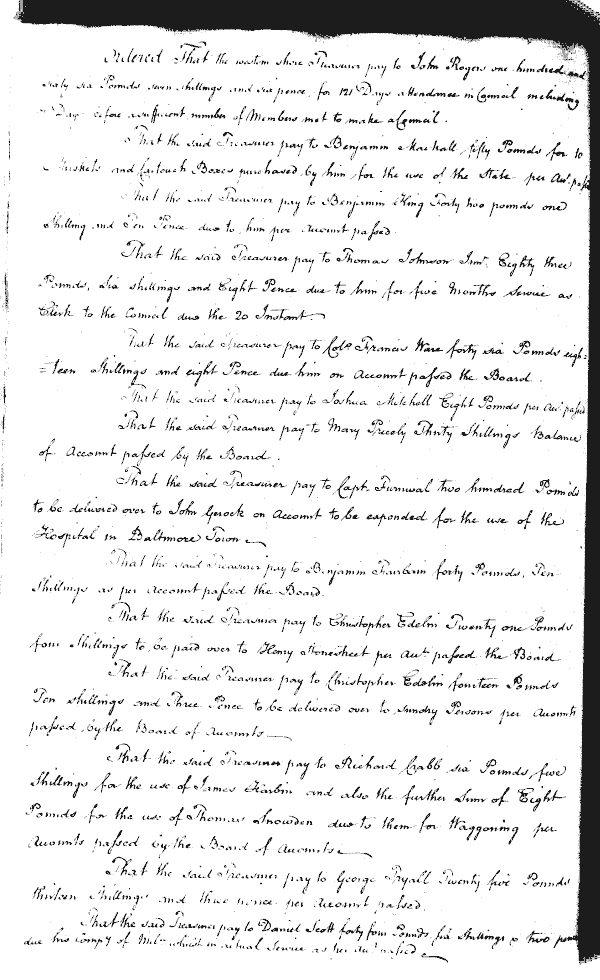 Ordered That the western shore Treasurer pay to John Rogers one hundred and
sixty six Pounds seven shillings and six pence for 121 Days attendance in Council including
Days before a sufficient number of Members met to make a Council.
That the said Treasurer pay to Benjamin Machall fifty Pounds for 10
Muskets and Cartouch Boxes purchased by him for the use of the State per Acct. passd
That the said Treasurer pay to Benjamin King Forty two pounds one
Shilling and Ten Pence due to him per Account passed.
That the said Treasurer pay to Thomas Johnson Junr. Eighty three
Pounds, Six shillings and Eight Pence due to him for five Months service as
Clerk to the Council due the 20 Instant.
That the said Treasurer pay to Colo. Francis Ware forty six Pounds eigh=
=teen Shillings and eight Pence due him on Account passed the Board.
That the said Treasurer pay to Joshua Mitchell Eight Pounds per Acct. passed
That the said Treasurer pay to Mary Thirty Shillings Balance
of Account passed by the Board.
That the said Treasurer pay to Capt. Furnival two hundred Pounds
to be delivered over to John Gerock on Account to be expended for the use of the
Hospital in Baltimore Town
That the said Treasurer pay to Benjamin Fairbairn forty Pounds, Ten
Shillings as per Account passed the Board.
That the said Treasurer pay to Christopher Edelin Twenty one Pounds
four Shillings to be paid over to Henry Honesheet per Acct. passed the Board
That the said Treasurer pay to Christopher Edelin fourteen Pounds
Ten shillings and Three Pence to be delivered over to sundry Persons per Accounts
passed by the Board of Accounts
That the said Treasurer pay to Richard Crabb six Pounds five
Shillings for the use of James Harbin and also the further Sum of Eight
Pounds for the use of Thomas Snowden due to them for Waggoning per
Accounts passed by the Board of Accounts
That the said Treasurer pay to George Fryall Twenty five Pounds
thirteen Shillings and three pence per Account passed.
That the said Treasurer pay to Daniel Scott forty four Pounds six Shillings & two pence
due his Compy of Mila. whilst in actual Service as per Acct. passed